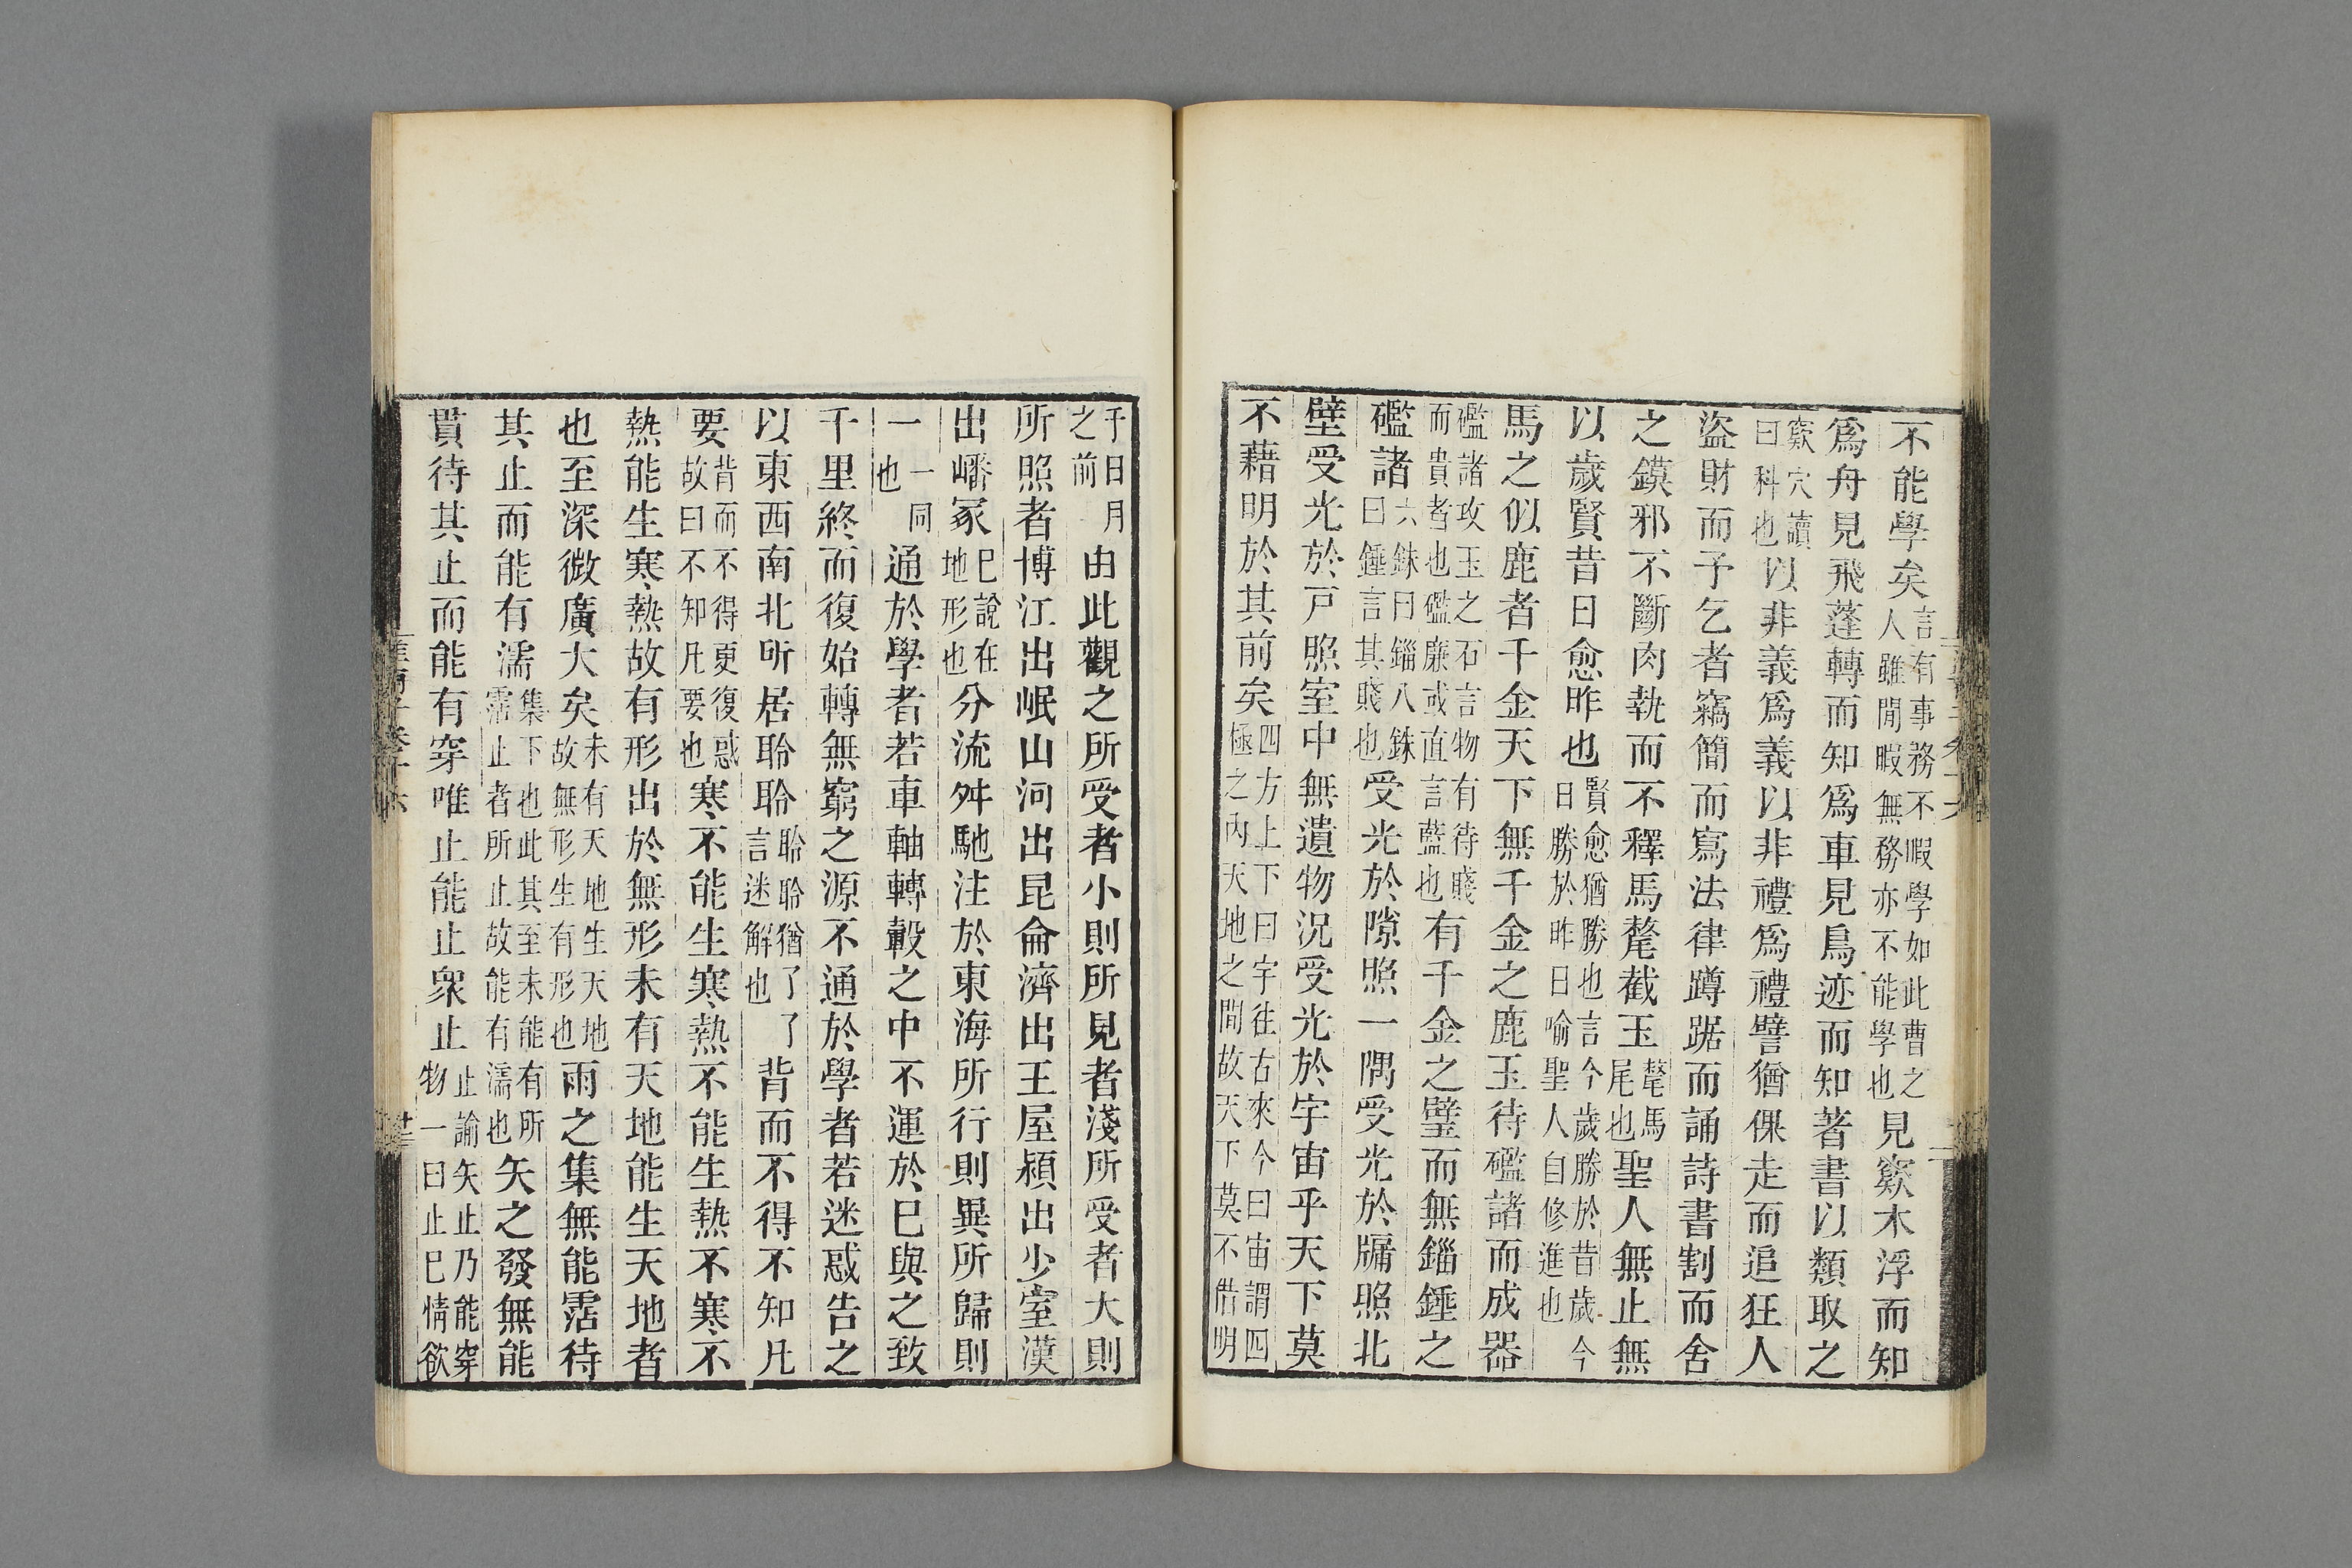 不能學矣言有事務不暇學如此曹之人雖閒暇無務亦不能學也見窾木浮而知
爲舟見飛蓬轉而知爲車見鳥迹而知著書以類取之
窾穴讀曰科也以非義爲義以非禮爲禮譬猶倮走而追狂人
盜財而予乞者竊簡而寫法律蹲踞而誦詩書割而舍
之鏌邪不斷肉執而不釋馬氂截玉氂馬尾也聖人無止無
以歲賢昔日愈昨也賢愈猶勝也言今歲勝於昔歲今日勝於昨日喻聖人自修進也
馬之似鹿者千金天下無千金之鹿玉待礛諸而成器
礛諸攻玉之石言物有待賤而貴者也礛廉或直言藍也有千金之璧而無錙錘之
礛諸六銖曰錙八銖曰錘言其賤也受光於隙照一隅受光於牖照北
壁受光於戸照室中無遺物況受光於宇宙乎天下莫
不藉明於其前矣四方上下曰宇往古來今曰宙謂四極之內天地之間故天下莫不借明
于日月之前由此觀之所受者小則所見者淺所受者大則
所照者博江出岷山河出昆侖濟出王屋潁出少室漢
出嶓冢巳說在地形也分流舛馳注於東海所行則異所歸則
一一同也通於學者若車軸轉轂之中不運於巳與之致
千里終而復始轉無窮之源不通於學者若迷惑告之
以東西南北所居聆聆聆聆猶了了言迷解也背而不得不知凡
要背而不得更復惑故曰不知凡要也寒不能生寒熱不能生熱不寒不
熱能生寒熱故有形出於無形未有天地能生天地者
也至深微廣大矣未有天地生天地故無形生有形也雨之集無能霑待
其止而能有濡集下也此其至未能有所霑止者所止故能有濡也矢之發無能
貫待其止而能有穿唯止能止衆止止諭矢止乃能穿物一曰止巳情欲
卄三